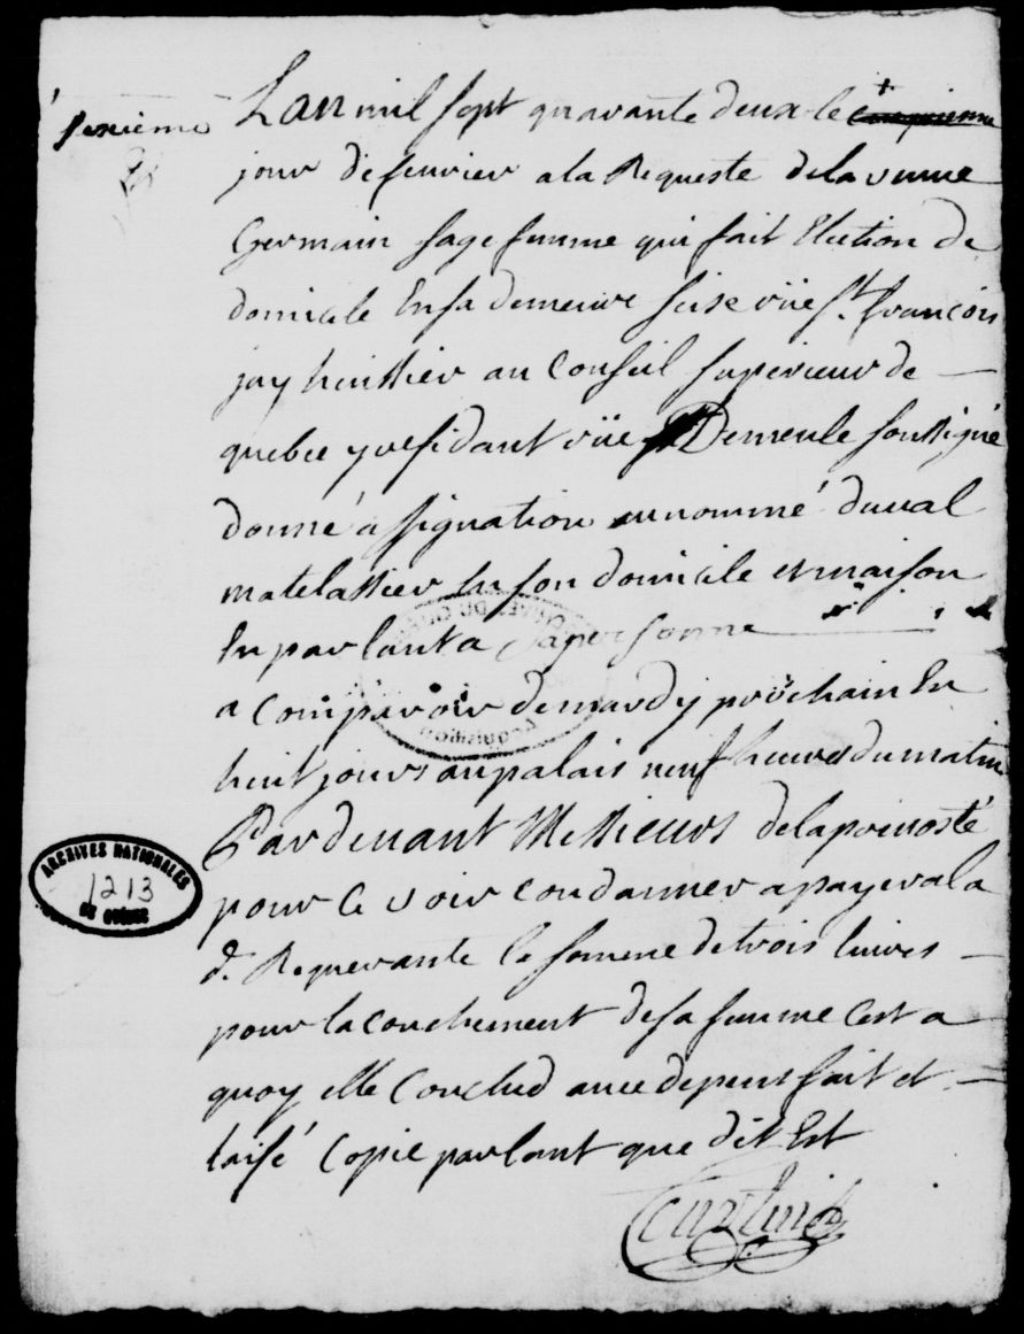 sixieme
Lan mil sept quarante deux le + cinquieme
jour de feuvrier a la Requeste dela veuue
Germain sage femme qui fait Election de
domicile En sa demeure sise rüe St. francois
jay huissier au Conseil superieur de
quebec y residant rüe Demeule soussigné
donné assignation au nommé duual
matelassier En son domicile et maison
En parlant a sa personne
a Comparoir de mardy prochain En
huit jours au palais neuf heures du matin
Pardeuant Messieurs dela preuosté
pour Ce voir condanner a payer a la
d. Requerante la somme de trois liures
pour lacouchement de sa femme Cest a
quoy elle Conclud auec depens fait et
laisé Copie parlant que dit Est
ARCHIVES NATIONALES
1213
DU QUÉBEC